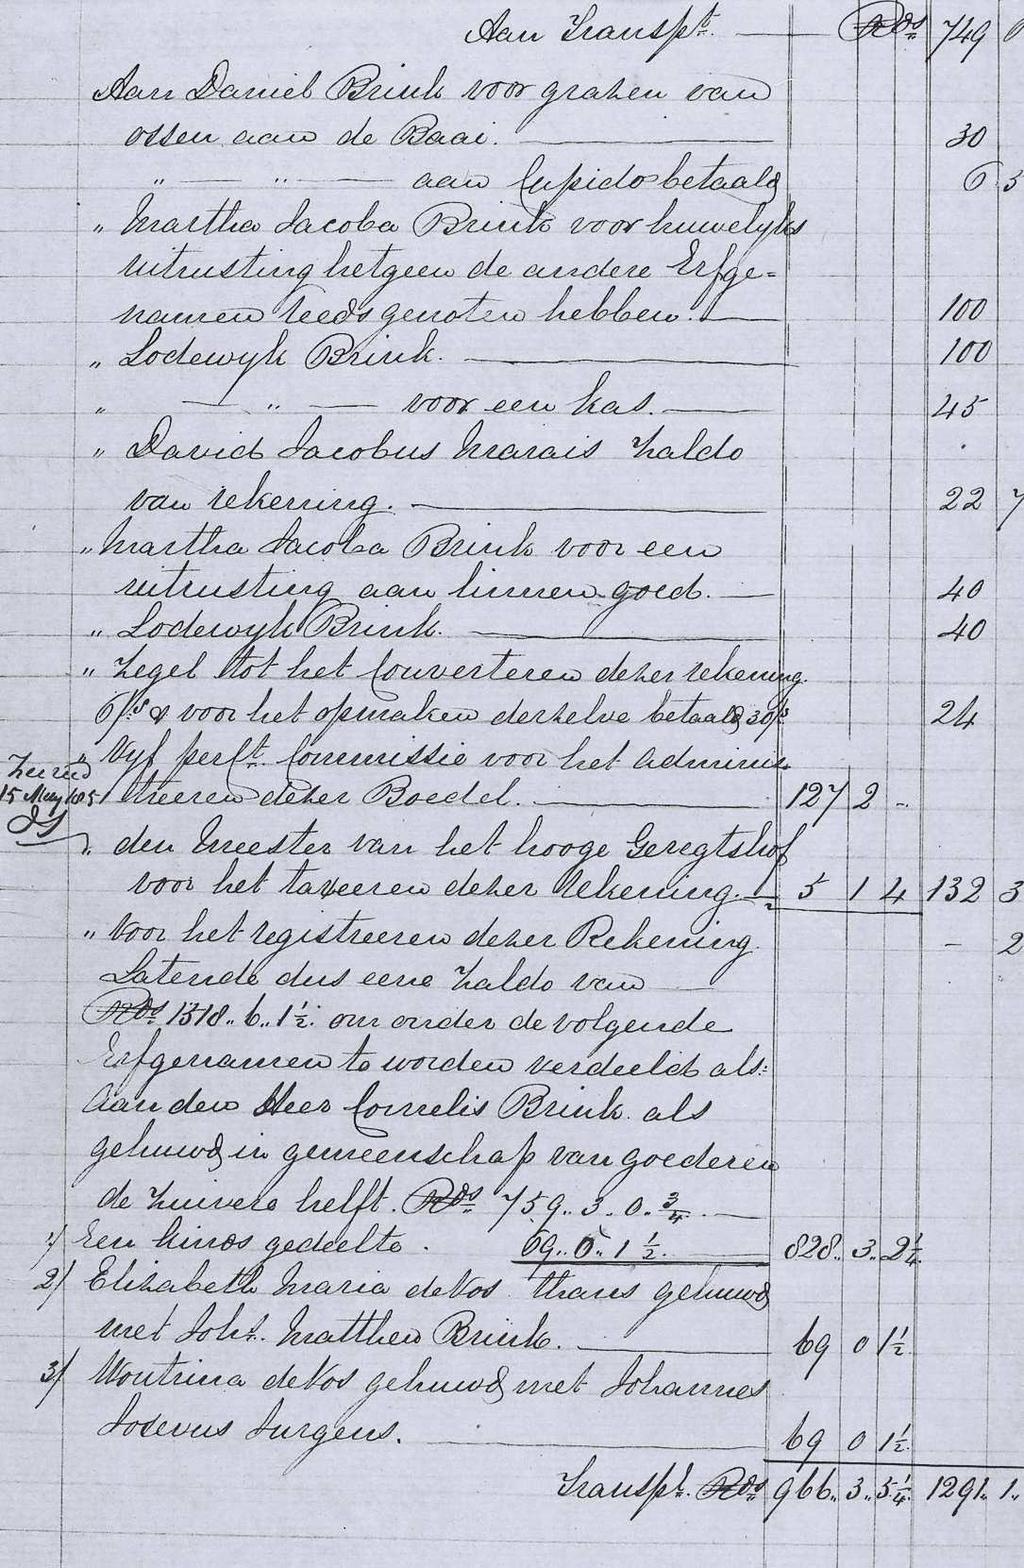 Aan Transpt. Rds 749
Aan Daniel Brink voor grazen van
ossen aan de Baai. 30
„ — „ — aan Cupido betaald 6 3
„ Martha Jacoba Brink voor huwelyks
uitrusting hetgeen de andere Erfge=
namen reeds genoten hebben. 100
„ Lodewyk Brink. 100
„ — „ — voor een kas. 45
„ David Jacobus Marais Zaldo
van rekening. 22 7
„ Martha Jacoba Brink voor een
uitrusting aan linnen goed. 40
„ Lodewyk Brink. 40
„ Zegel tot het Converteren dezer rekening
6/s & voor het opmaken derzelve betaald 30/s 24
„ Vyf perCt. Commissie voor het adminis-
treeren dezer Boedel. 127 2 -
15 May 185
„ den Meester van het hooge Geregtshof
voor het taxeeren dezer rekening. 5 1 4 132 3
„ Voor het registreeren dezer Rekening. - 2
Latende dus eene Zaldo van
Rds 1518.. 6.. 1½. om onder de volgende
Erfgenamen te worden verdeeld als:
Aan den Heer Cornelis Brink als
gehuwd in gemeenschap van goederen
de zuivere helft. Rds 759.. 3.. 0.. ¾.
1/ Een kinds gedeelte. 69.. 0.. 1½. 828.. 3.. 2¼
2/ Elizabeth Maria deVos thans gehuwd
met Johs. Matthew Brink. 69 0 1½
3/ Woutrina deVos gehuwd met Johannes
Josevus Jurgens. 69 0 1½
Transpt. Rds 966.. 3.. 5¼. 1291.. 1..